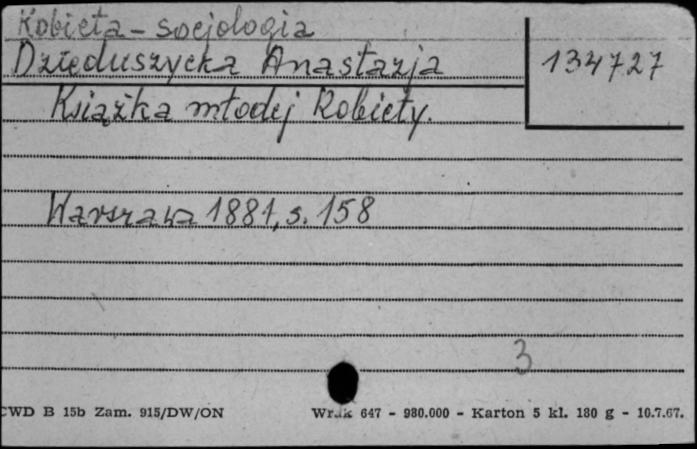 Kobieta - socjologia
Dzieduszycka Anastazja
134727
Książka młodej kobiety.
Warszawa 1881, s. 158
3
CWD B 15b Zam. 915/DW/ON
647 - 980.000 - Karton 5 kl. 180 g - 10.7.67.